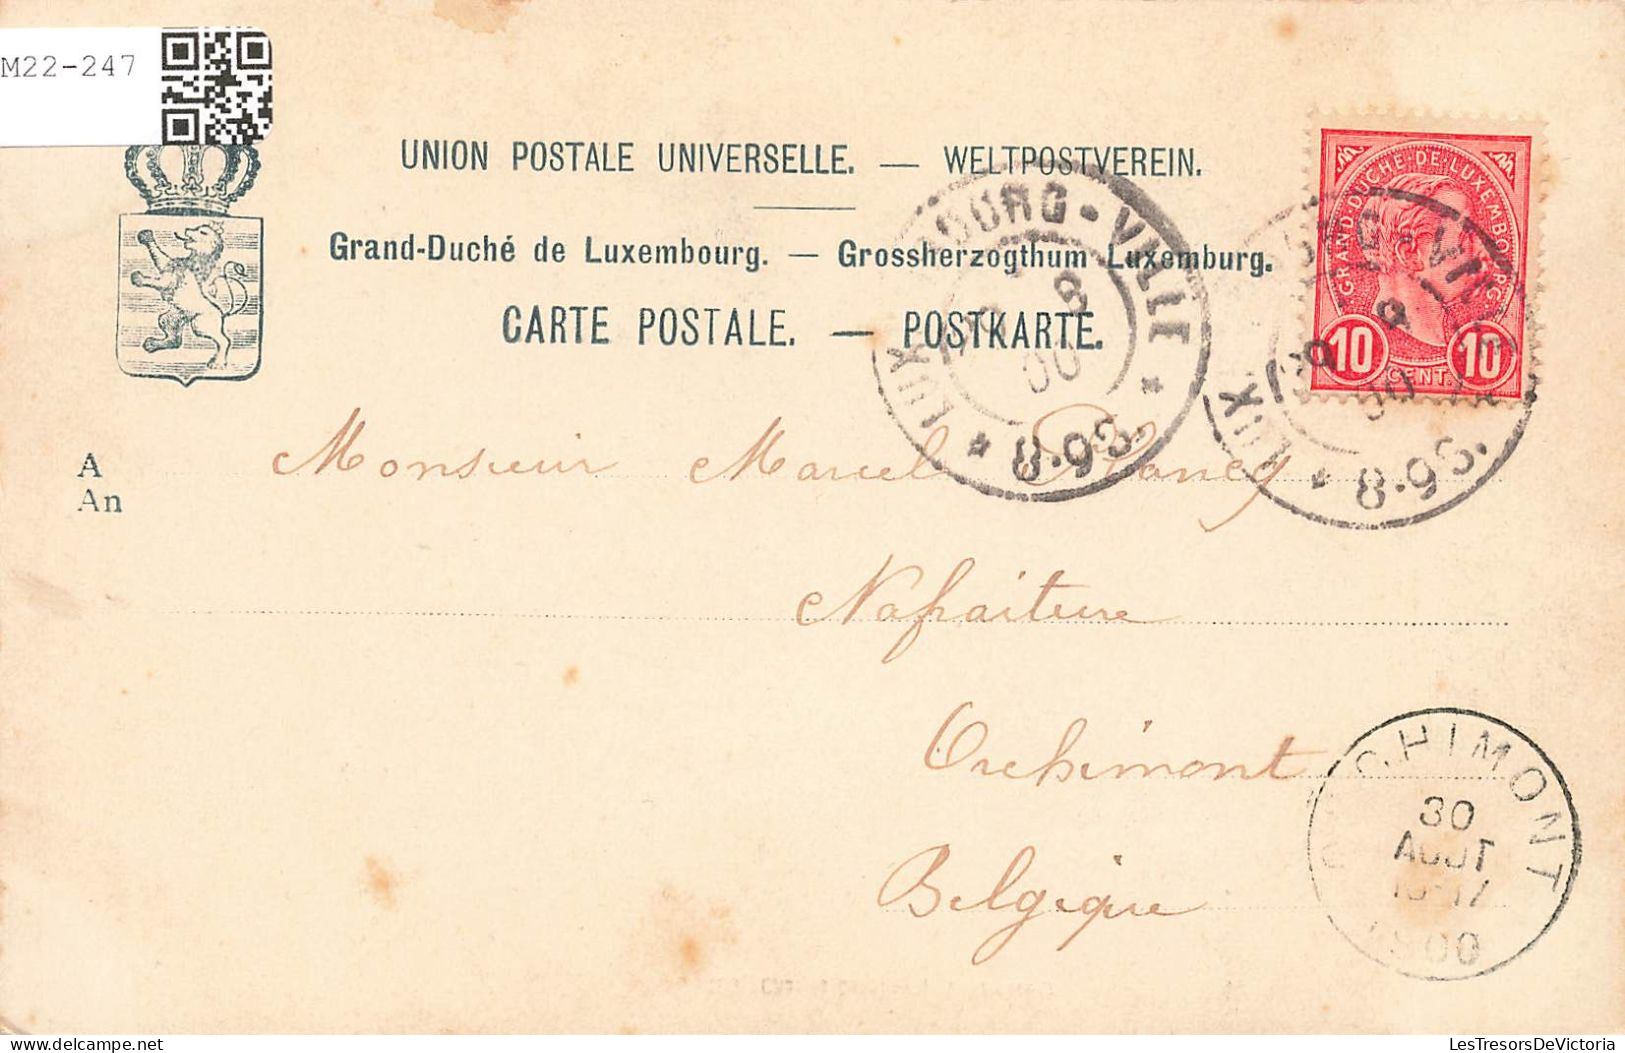 M22-247
UNION POSTALE UNIVERSELLE. — WELTPOSTVEREIN.
Grand-Duché de Luxembourg. — Grossherzogthum Luxemburg.
CARTE POSTALE. — POSTKARTE.
GRAND-DUCHÉ-DE-LUXEMBOURG
10 CENT. 10
LUX BOURG-VILLE
8-9S.
8-9S.
A
An
Monsieur Marcel
Nafraiture
Orchimont
Belgique
CHIMONT
30
AOUT
1900
delcampe.net
LesTresorsDeVictoria